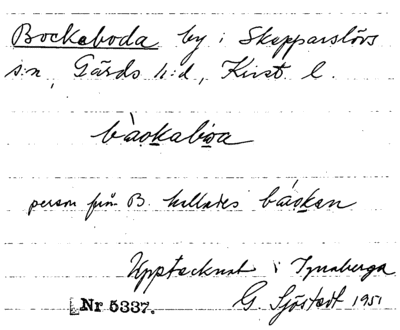 Bockaboda by i Skepparslövs
s:n, Gärds h:d, Krist. l.
bàokabọa
person från B. kallades báokan
Upptecknat i Ignaberga
G. Sjöstedt 1951
Nr 5337.